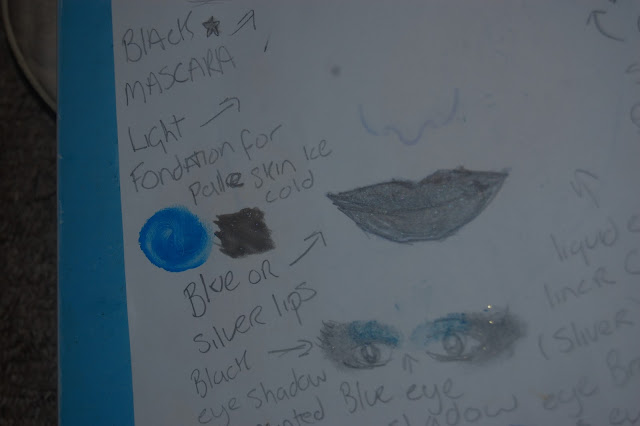 BLACK
MASCARA
Light
Fondation for
Palle skin Ice
cold
Blue or
silver lips
Black
eye shadow
Blue eye
shadow
liquid
liner
(Sliver
eye